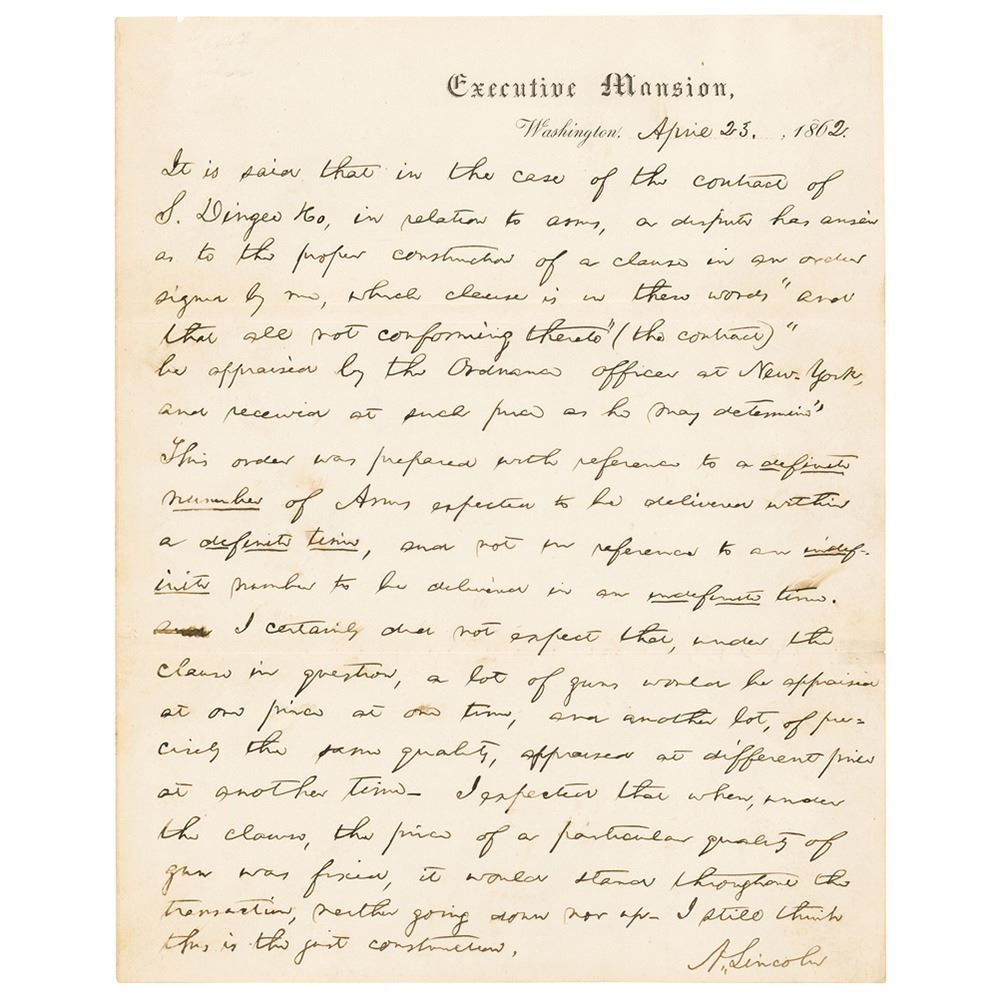 Executive Mansion,
Washington, April 23, 1862.
It is said that in the case of the contract of
S. Dingee &Co, in relation to arms, a dispute has arisen
as to the proper construction of a clause in an order
signed by me, which clause is in these words "and
that all not conforming thereto" (the contract) "
be appraised by the Ordnance officer at New-York,
and received at such price as he may determine"
This order was prepared with reference to a definite
number of Arms expected to be delivered within
a definite time, and not in reference to an indef-
inite number to be delivered in an indefinite time.
I certainly did not expect that, under the
clause in question, a lot of guns would be appraised
at one price at one time, and another lot, of pre=
cisely the same quality, appraised at different price
at another time— I expected that when, under
the clause, the price of a particular quality of
gun was fixed, it would stand throughout the
transaction, neither going down nor up— I still think
this is the just construction.
A. Lincoln